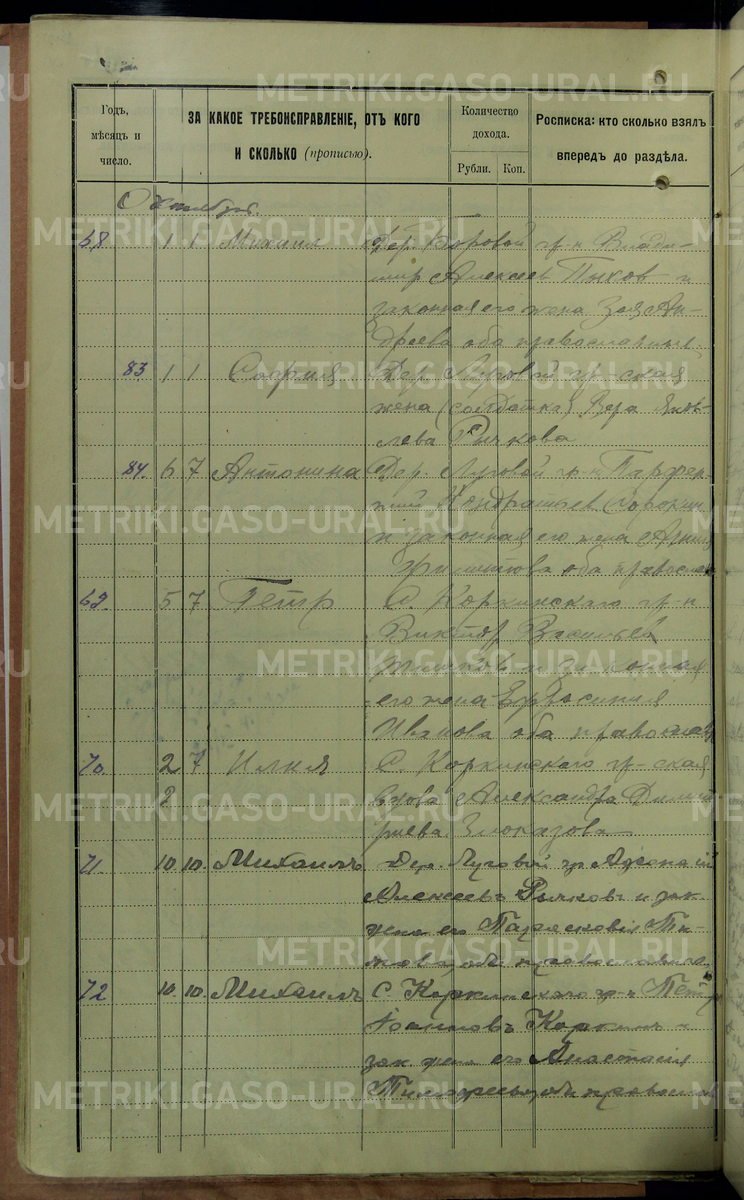 METRIKI.GASO-URAL.RU
Годъ, мѣсяцъ и число.
ЗА КАКОЕ ТРЕБОИСПРАВЛЕНІЕ, ОТЪ КОГО И СКОЛЬКО (прописью).
Количество дохода.
Рубли. Коп.
Росписка: кто сколько взялъ впередъ до раздѣла.
Октябрь.
68 1 1 Михаил Дер. Боровой гр-н Влади-
мир Алексеев Пыхов и
законная его жена Зоя Ан-
дреева оба православные
83 1 1 София Дер. Луговой гр-ская
жена (солдатка) Вера Яков-
лева Рычкова
84 6 7 Антонина Дер. Луговой гр-н Парфен-
тий Кондратьев
и законная его жена
Филиппова оба православ
69 5 7 Петр С. Коркинскаго гр-н
Виктор Васильев
и законная
его жена Ефросиния
Иванова оба православ
70 2 7 Илия С. Коркинскаго гр-ская
8 вдова Александра Димит
риева
71 10 10 Михаилъ Дер. Луговой гр.
Алексеевъ Рычковъ и зак
жена его Парасковія Ти-
оба православные
72 10 10 Михаилъ С Коркинскаго гр-н Петр
Иоанновъ Коркинъ и
зак. жена его Анастасія
Тимофеев оба православ